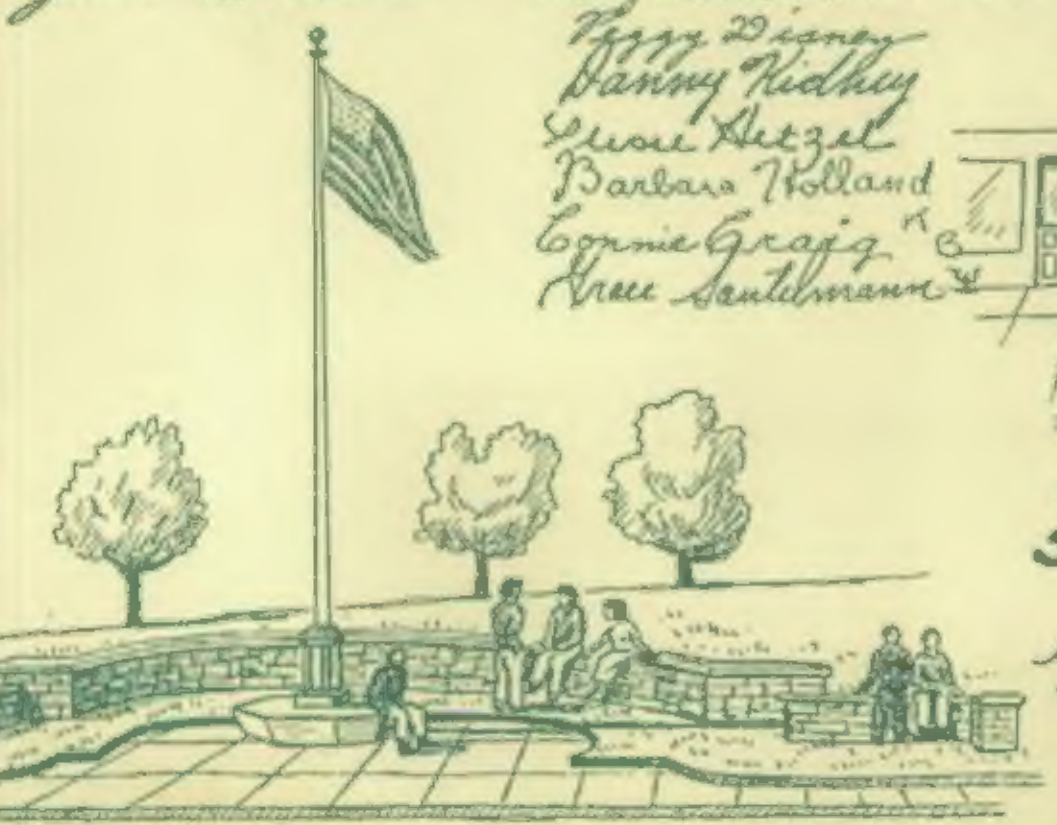 Peggy Disney
Danny Kidhey
Susie Hetzel
Barbara Holland
Connie Grajg
Santelmann